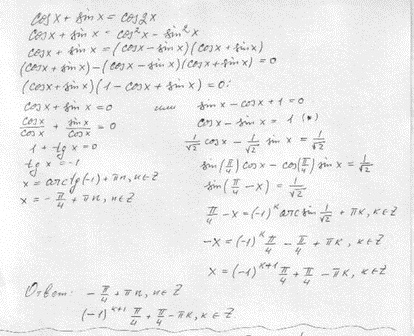 cosx + sinx = cos2x
cosx + sinx = cos²x - sin²x
cosx + sinx = (cosx - sinx)(cosx + sinx)
(cosx + sinx) - (cosx - sinx)(cosx + sinx) = 0
(cosx + sinx)(1 - cosx + sinx) = 0:
cosx + sinx = 0 или sinx - cosx + 1 = 0
cosx/cosx + sinx/cosx = 0
1 + tgx = 0
tgx = -1
x = arctg(-1) + πn, n∈Z
x = -π/4 + πn, n∈Z
cosx - sinx = 1 (*)
1/√2 cosx - 1/√2 sinx = 1/√2
sin(π/4)cosx - cos(π/4)sinx = 1/√2
sin(π/4 - x) = 1/√2
π/4 - x = (-1)^k arcsin 1/√2 + πk, k∈Z
-x = (-1)^k π/4 - π/4 + πk, k∈Z
x = (-1)^(k+1) π/4 + π/4 - πk, k∈Z
Ответ: -π/4 + πn, n∈Z
(-1)^(k+1) π/4 + π/4 - πk, k∈Z